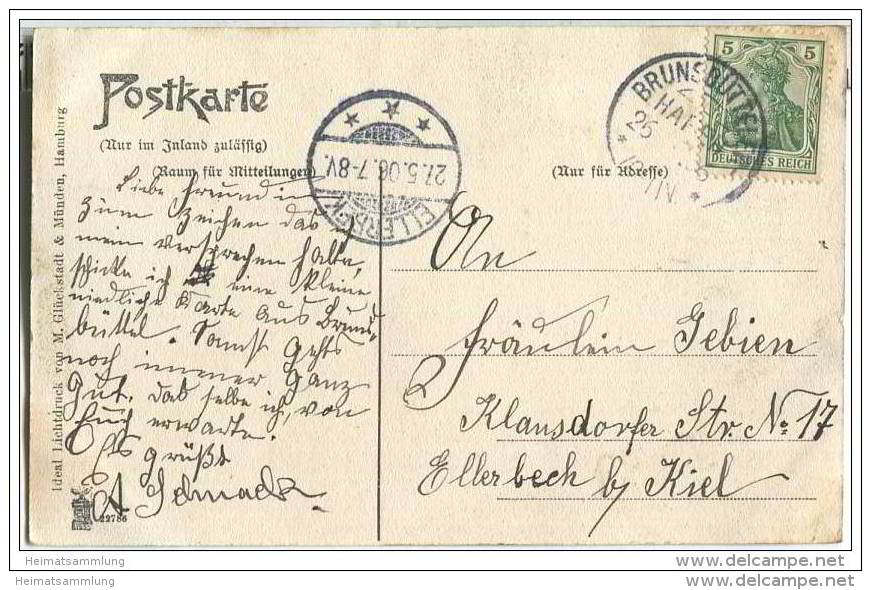 Postkarte
(Nur im Inland zulässig)
Raum für Mitteilungen)
(Nur für Adresse)
Ideal Lichtdruck von M. Glückstadt & Münden, Hamburg
22786
BRUNSBÜTTEL
HAF
5 5
DEUTSCHES REICH
27.5.06.7-8V.
ELLERBEK
Liebe Freundin
zum Zeichen das ich
mein Versprechen halte,
schicke ich eine kleine
niedliche Karte aus Bruns-
büttel. Sonst gehts
noch immer ganz
gut, das selbe ich, von
Euch erwarte.
Es grüßt
An
Fräulein Gebien
Klausdorfer Str. No 17
Ellerbeck b/ Kiel
Heimatsammlung
Heimatsammlung
www.delcampe.net
www.delcampe.net